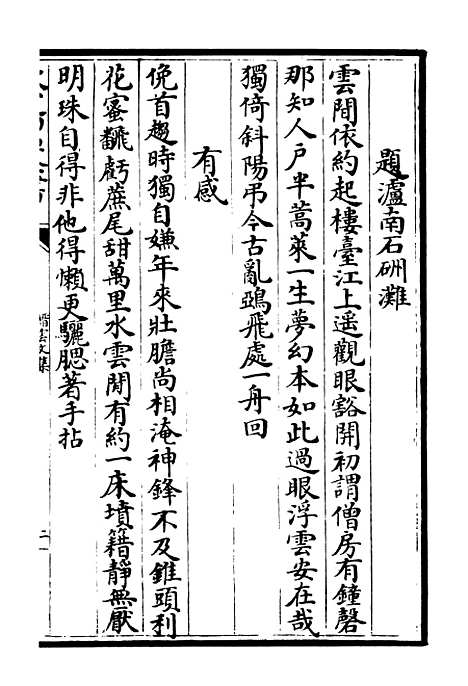 題瀘南石硎灘
雲間依約起樓臺江上遥觀眼豁開初謂僧房有鐘磬
那知人戸半蒿萊一生夢幻本如此過眼浮雲安在哉
獨倚斜陽弔今古亂鴉飛處一舟回
有感
俛首趨時獨自嫌年來壯膽尚相淹神鋒不及錐頭利
花蜜翻虧蔗尾甜萬里水雲閒有約一床墳籍靜無厭
明珠自得非他得懶更驪腮著手拈
縉雲文集